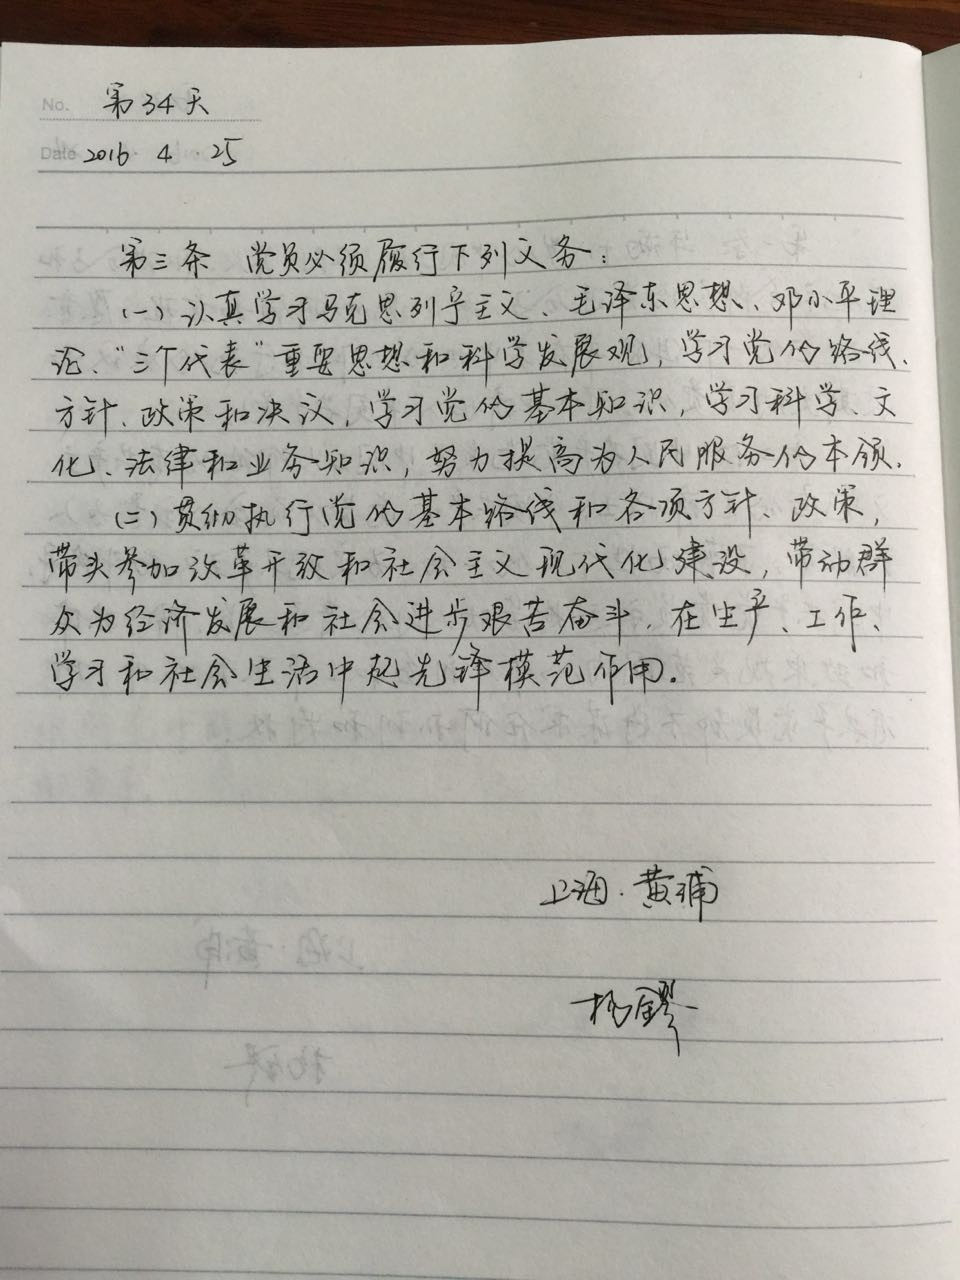 No. 第34天
Date 2016 4 25
第三条 党员必须履行下列义务：
(一)认真学习马克思列宁主义、毛泽东思想、邓小平理
论、“三个代表”重要思想和科学发展观，学习党的路线、
方针、政策和决议，学习党的基本知识，学习科学、文
化、法律和业务知识，努力提高为人民服务的本领。
(二)贯彻执行党的基本路线和各项方针、政策，
带头参加改革开放和社会主义现代化建设，带动群
众为经济发展和社会进步艰苦奋斗，在生产、工作、
学习和社会生活中起先锋模范作用。
上海·黄浦
杨